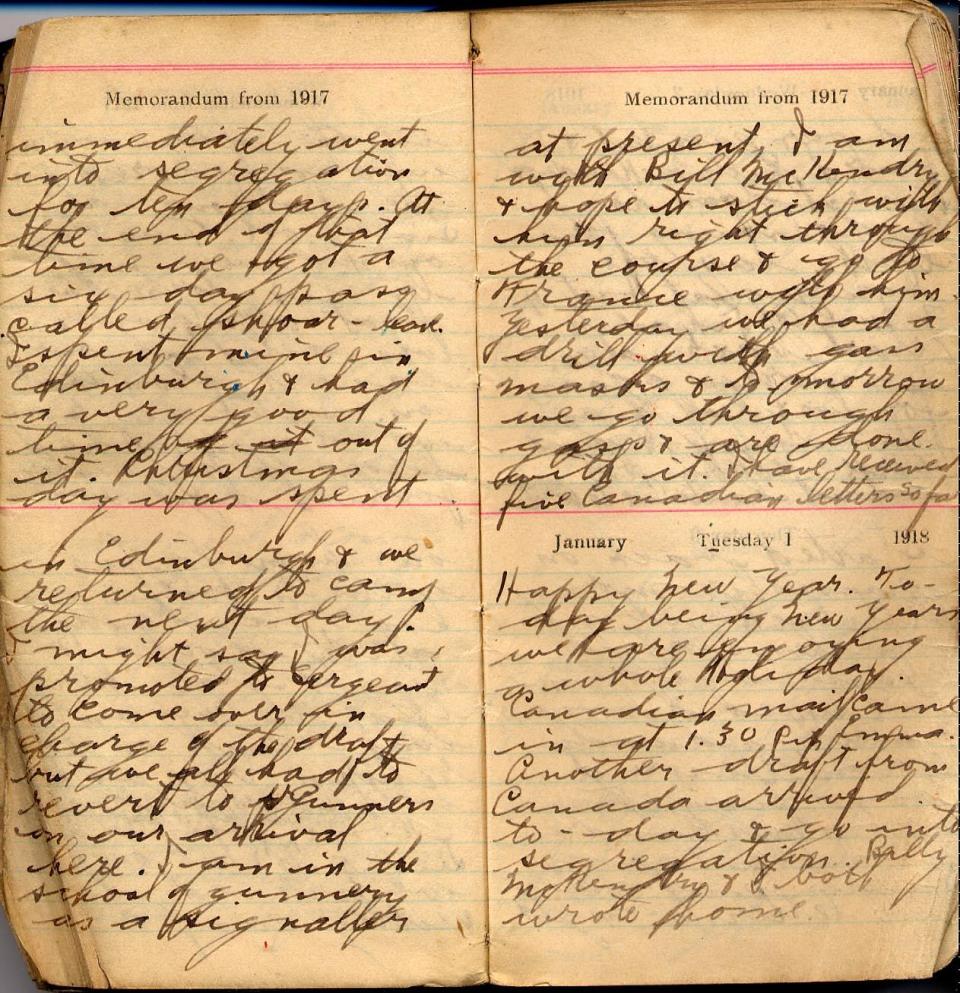 Memorandum from 1917
immediately went
into segregation
for ten days. At
the end of that
time we got a
six day pass
called
I spent mine in
Edinburgh & had
a very good
time out of
it. Christmas
day was spent
in Edinburgh & we
returned to camp
the next day.
I might say I was
promoted to Sergeant
to come over in
charge of the draft
but we all had to
revert to Gunners
on our arrival
here. I am in the
school of gunnery
as a signaller
Memorandum from 1917
at present, I am
with Bill McKendry
& hope to stick with
him right through
the course & go to
France with him.
Yesterday we had a
drill with gass
masks & to morrow
we go through
gass & are done
with it. I have received
five Canadian letters so far
January Tuesday 1 1918
Happy New Year. To-
day being New Years
we are enjoying
a whole holiday.
Canadian mail came
in at 1.30 P.M.
Another draft from
Canada arrived
to-day & go into
segregation. Billy
McKendry & I both
wrote home.